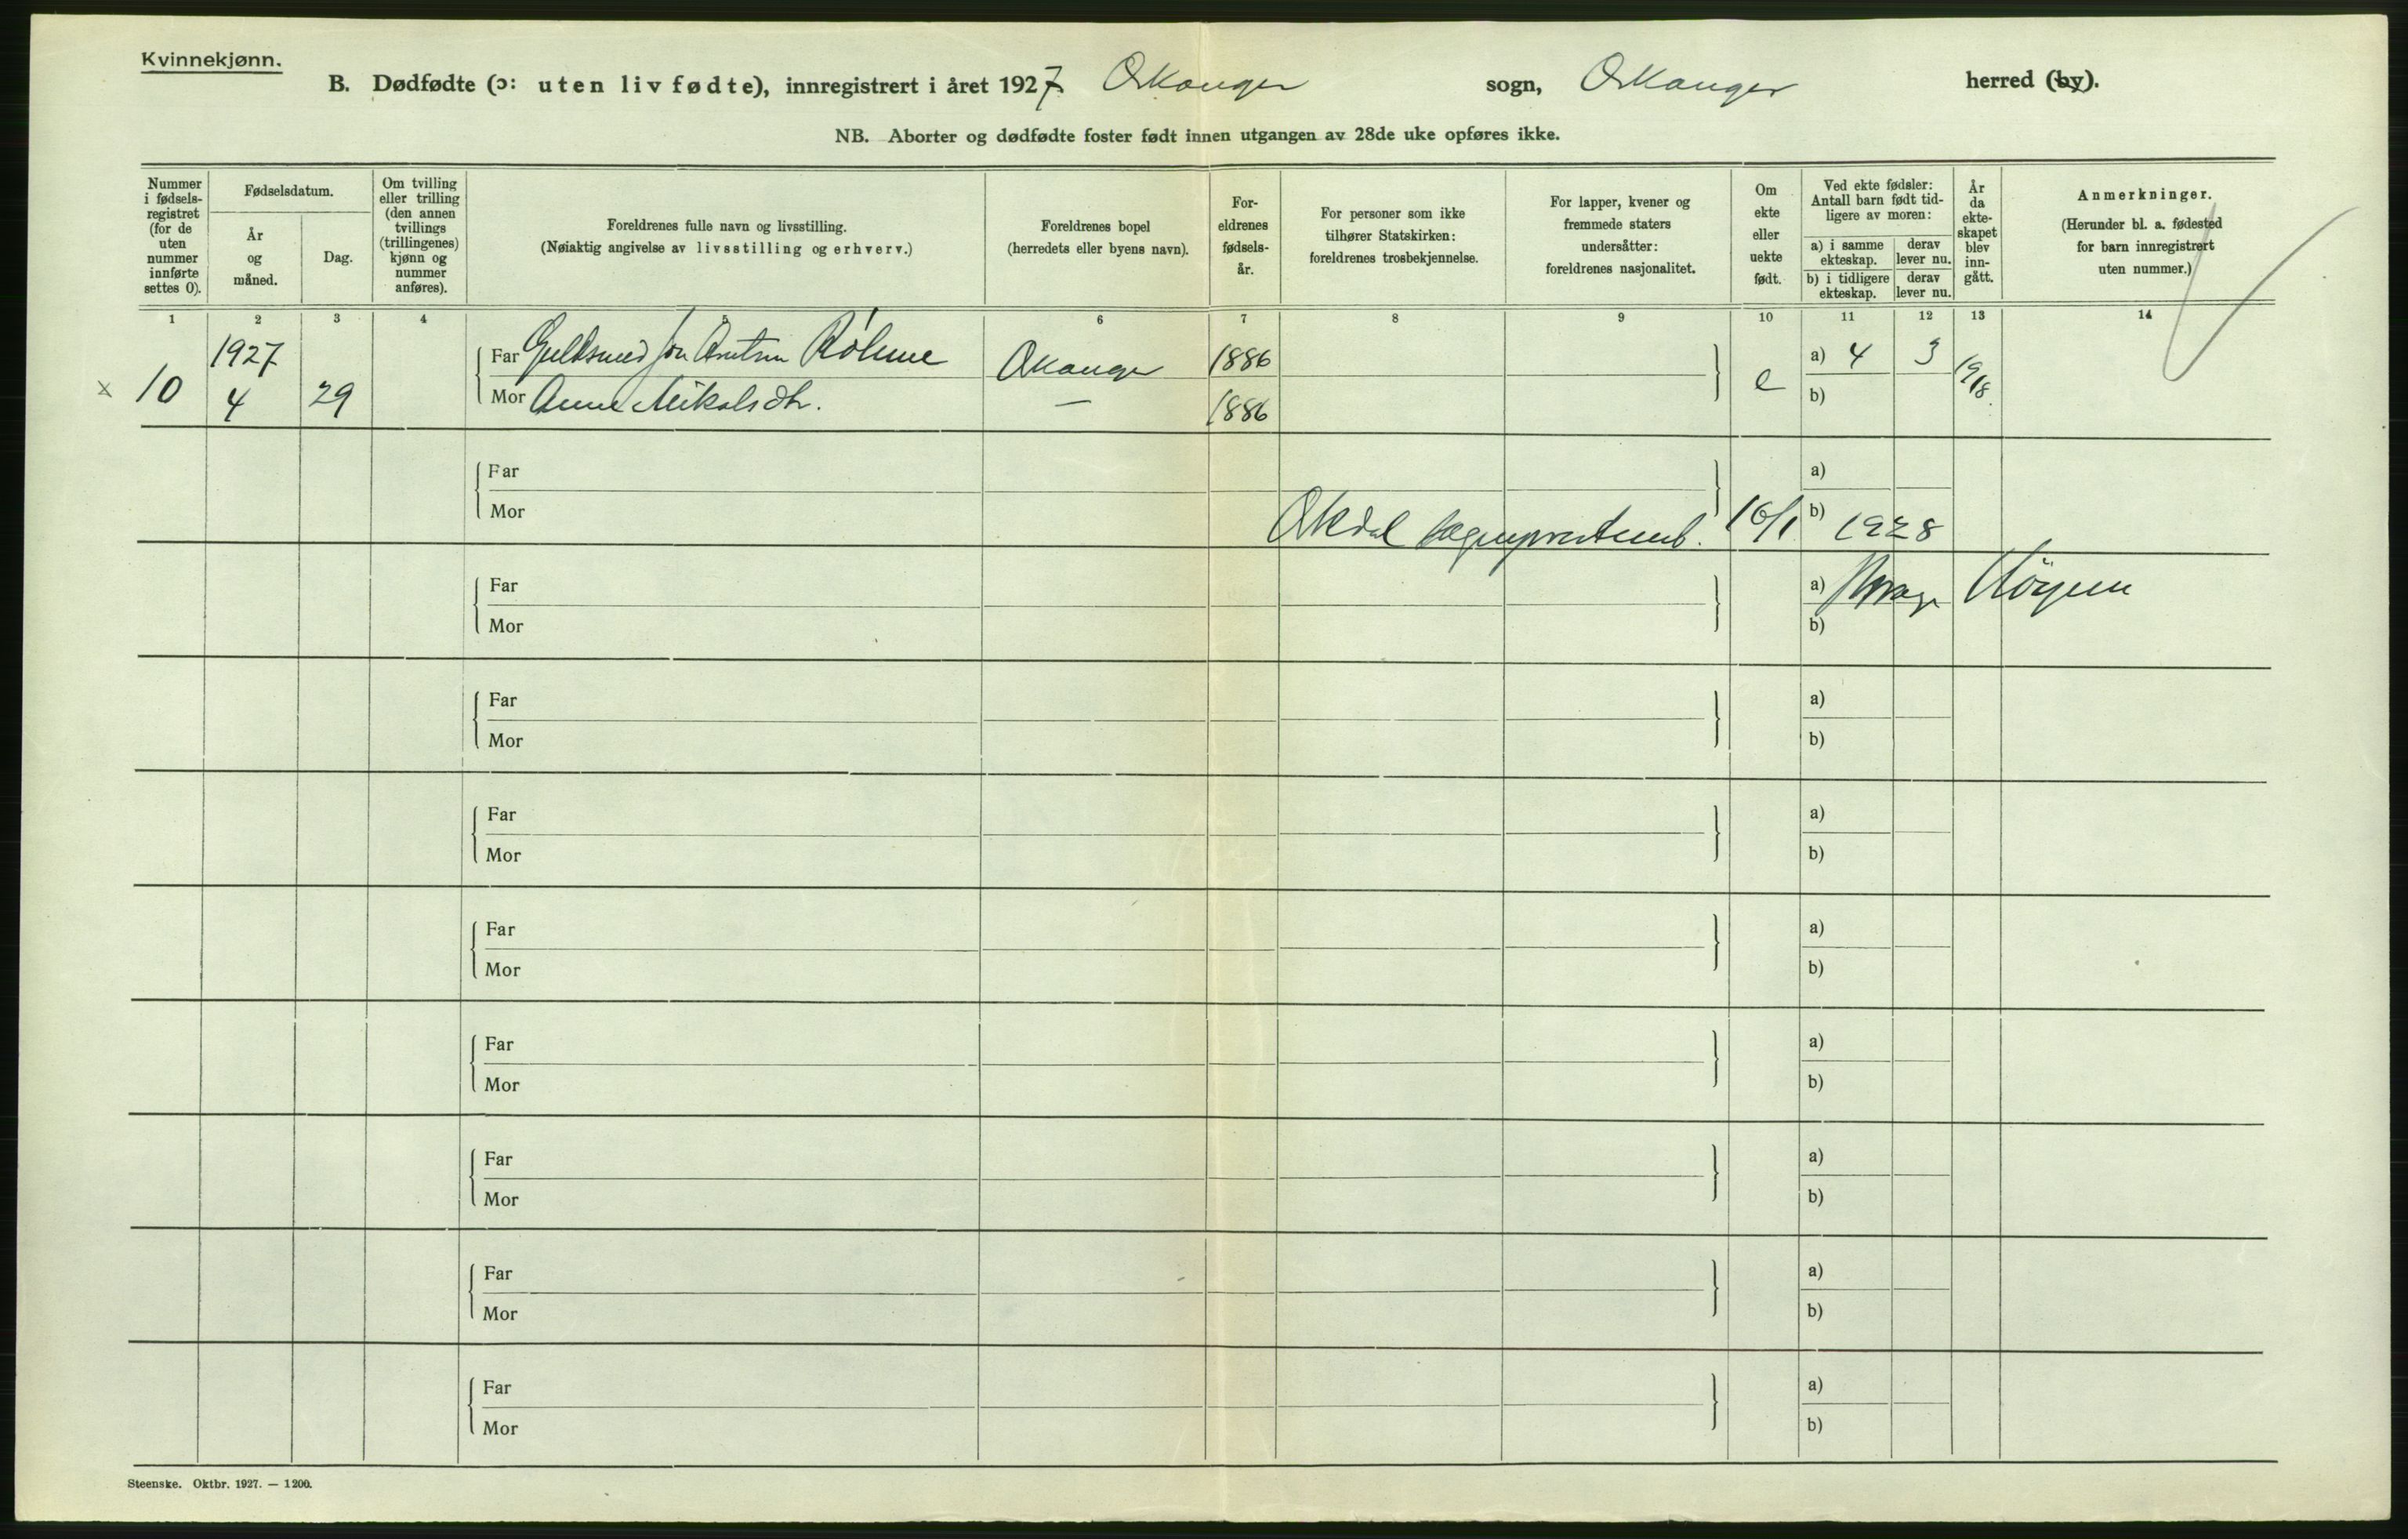 Kvinnekjønn.
B. Dødfødte (ɔ: uten liv fødte), innregistrert i året 1927 Orkanger sogn, Orkanger herred (by).
NB. Aborter og dødfødte foster født innen utgangen av 28de uke opføres ikke.
Nummer i fødselsregistret (for de uten nummer innførte settes 0).
Fødselsdatum.
År og måned.
Dag.
Om tvilling eller trilling (den annen tvillings (trillingenes) kjønn og nummer anføres).
Foreldrenes fulle navn og livsstilling.
(Nøiaktig angivelse av livsstilling og erhverv.)
Foreldrenes bopel
(herredets eller byens navn).
Foreldrenes fødselsår.
For personer som ikke tilhører Statskirken: foreldrenes trosbekjennelse.
For lapper, kvener og fremmede staters undersåtter: foreldrenes nasjonalitet.
Om ekte eller uekte født.
Ved ekte fødsler: Antall barn født tidligere av moren:
a) i samme ekteskap.
derav lever nu.
b) i tidligere ekteskap.
derav lever nu.
År da ekteskapet blev inngått.
Anmerkninger.
(Herunder bl. a. fødested for barn innregistrert uten nummer.)
1 2 3 4 5 6 7 8 9 10 11 12 13 14
x 10 1927 4 29
Far Gullsmed Jon Røhme Orkanger 1886 e a) 4 3 1918
Mor Anne Nikolsdtr. — 1886 b)
Far a)
Mor b)
Orkdal sogneprestemb. 16/1 1928
Far a)
Mor b)
Far a)
Mor b)
Far a)
Mor b)
Far a)
Mor b)
Far a)
Mor b)
Far a)
Mor b)
Far a)
Mor b)
Far a)
Mor b)
Steenske. Oktbr. 1927. — 1200.